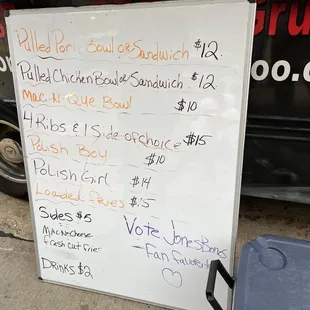 Pulled Pork Bowl or Sandwich $12
Pulled Chicken Bowl or Sandwich $12
Mac-N-Que Bowl $10
4 Ribs & 1 Side of choice $15
Polish Boy $10
Polish Girl $14
Loaded Fries $15
Sides $5
Mac N Cheese
Fresh Cut Fries
Drinks $2
Vote Jones Bones
- Fan Favorite
Gru
oo.c